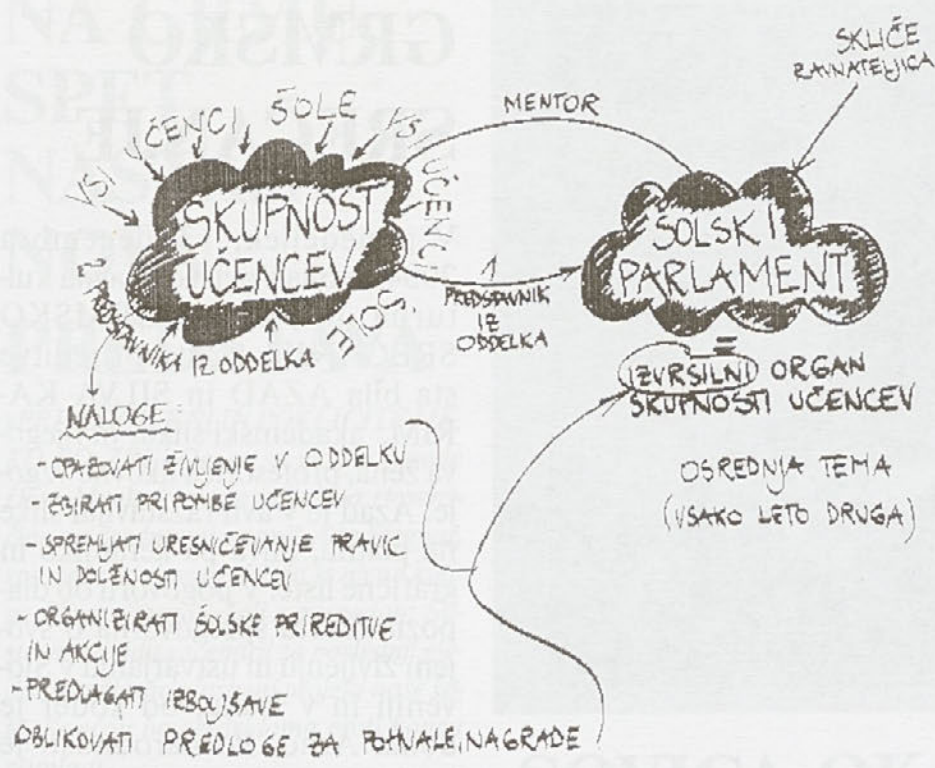 VSI UČENCI ŠOLE
VSI UČENCI ŠOLE
SKUPNOST
UČENCEV
2 PREDSTAVNIKA IZ ODDELKA
MENTOR
PREDSTAVNIK
IZ
ODDELKA
SKLIČE
RAVNATELJICA
ŠOLSKI
PARLAMENT
=
IZVRSILNI ORGAN
SKUPNOSTI UČENCEV
OSREDNJA TEMA
(VSAKO LETO DRUGA)
NALOGE:
- OPAZOVATI ŽIVLJENJE V ODDELKU
- ZBIRATI PRIPOMBE UČENCEV
- SPREMLJATI URESNIČEVANJE PRAVIC
IN DOLŽNOSTI UČENCEV
- ORGANIZIRATI ŠOLSKE PRIREDITVE
IN AKCIJE
- PREDLAGATI IZBOLJŠAVE
OBLIKOVATI PREDLOGE ZA POHVALE, NAGRADE